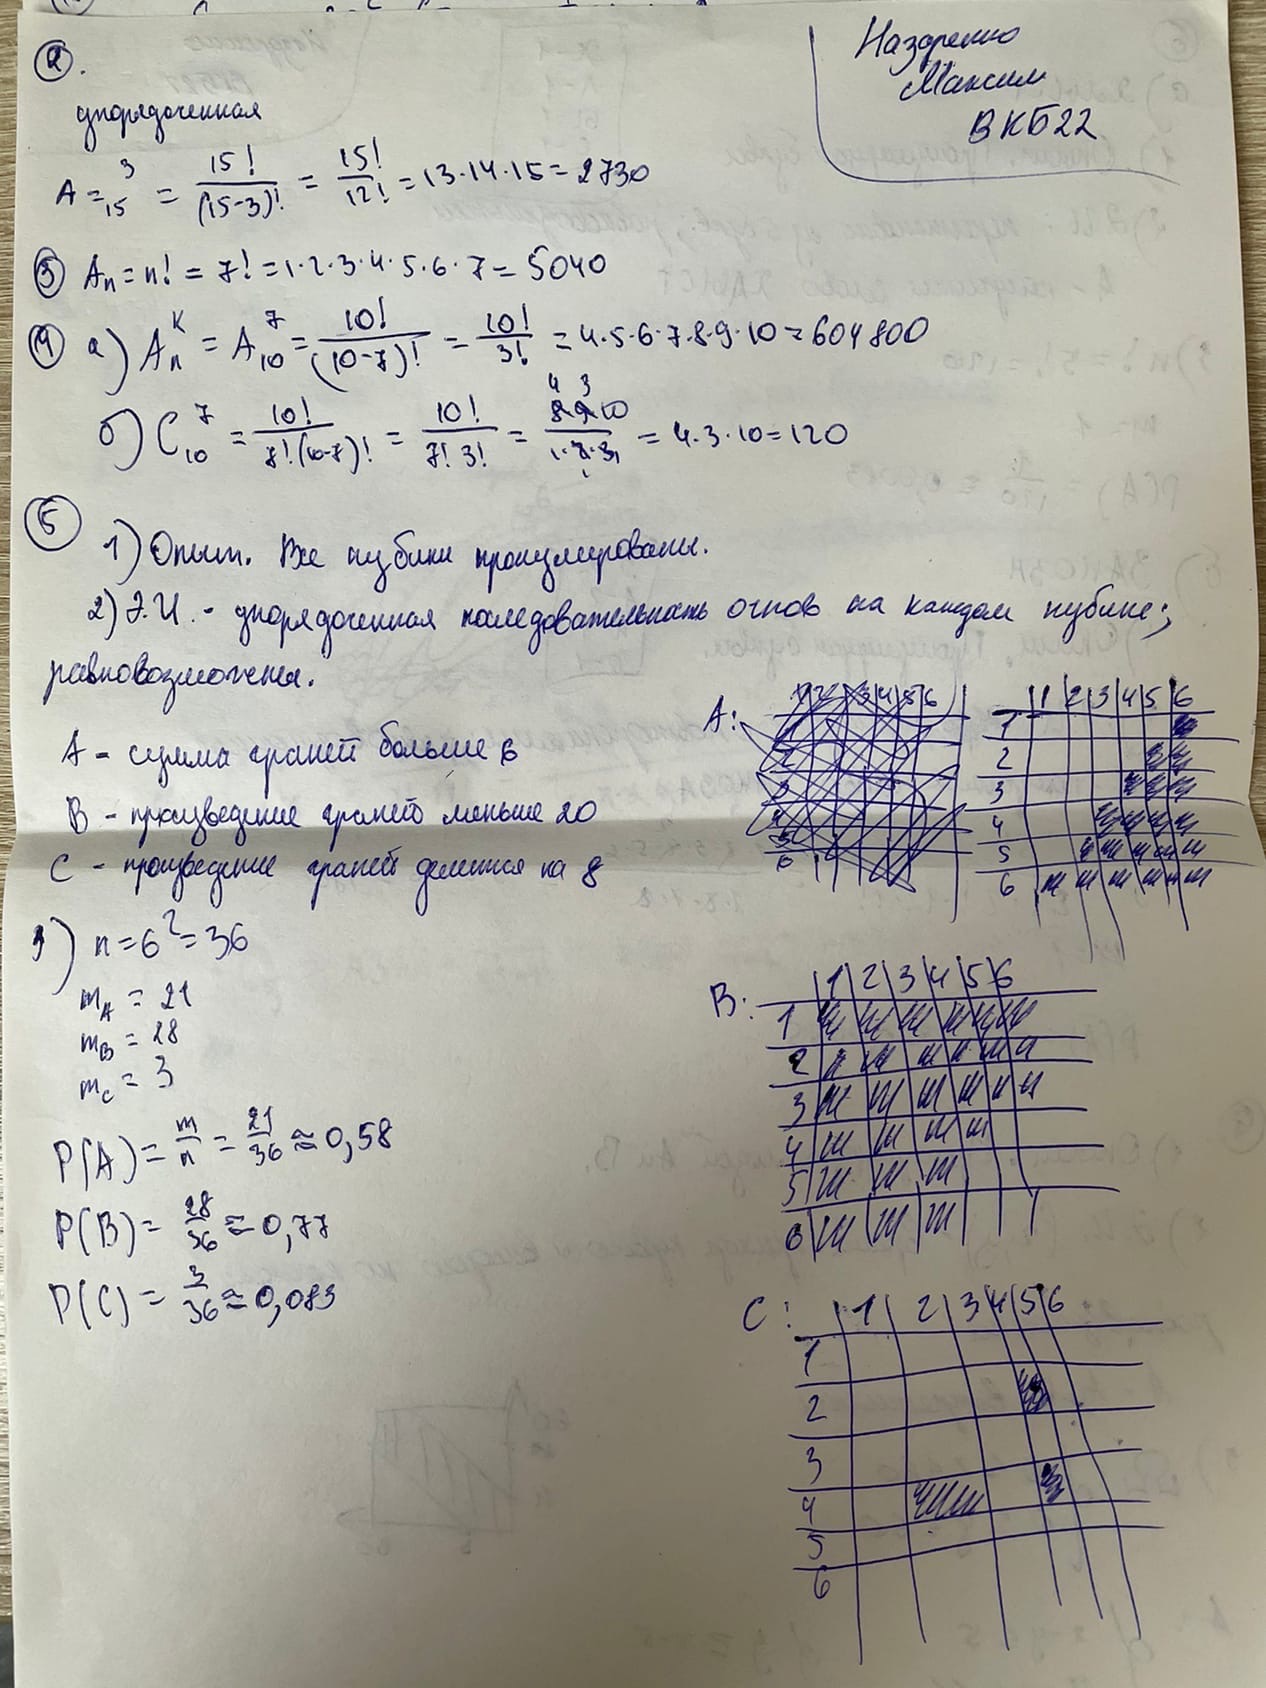 Назаренко
Максим
ВКБ22
2.
упорядоченная
A = 3 15 = 15! / (15-3)! = 15! / 12! = 13·14·15 = 2730
3 Aₙ = n! = 7! = 1·2·3·4·5·6·7 = 5040
4 а) Aₙᴷ = A₁₀⁷ = 10! / (10-7)! = 10! / 3! = 4·5·6·7·8·9·10 = 604800
б) C₁₀⁷ = 10! / 7!(10-7)! = 10! / 7! 3! = 8·9·10 / 1·2·3 = 4·3·10 = 120
5
1) Опыт. Все кубики пронумерованы.
2) Э.И. - упорядоченная последовательность очков на каждом кубике;
равновозможен.
A - сумма граней больше 6
B - произведение граней меньше 20
C - произведение граней делится на 8
3) n = 6² = 36
m_A = 21
m_B = 28
m_C = 3
P(A) = m/n = 21/36 ≈ 0,58
P(B) = 28/36 ≈ 0,77
P(C) = 3/36 ≈ 0,083
A:
1 2 3 4 5 6
1
2
3
4
5
6
B:
1 2 3 4 5 6
1
2
3
4
5
6
C:
1 2 3 4 5 6
1
2
3
4
5
6